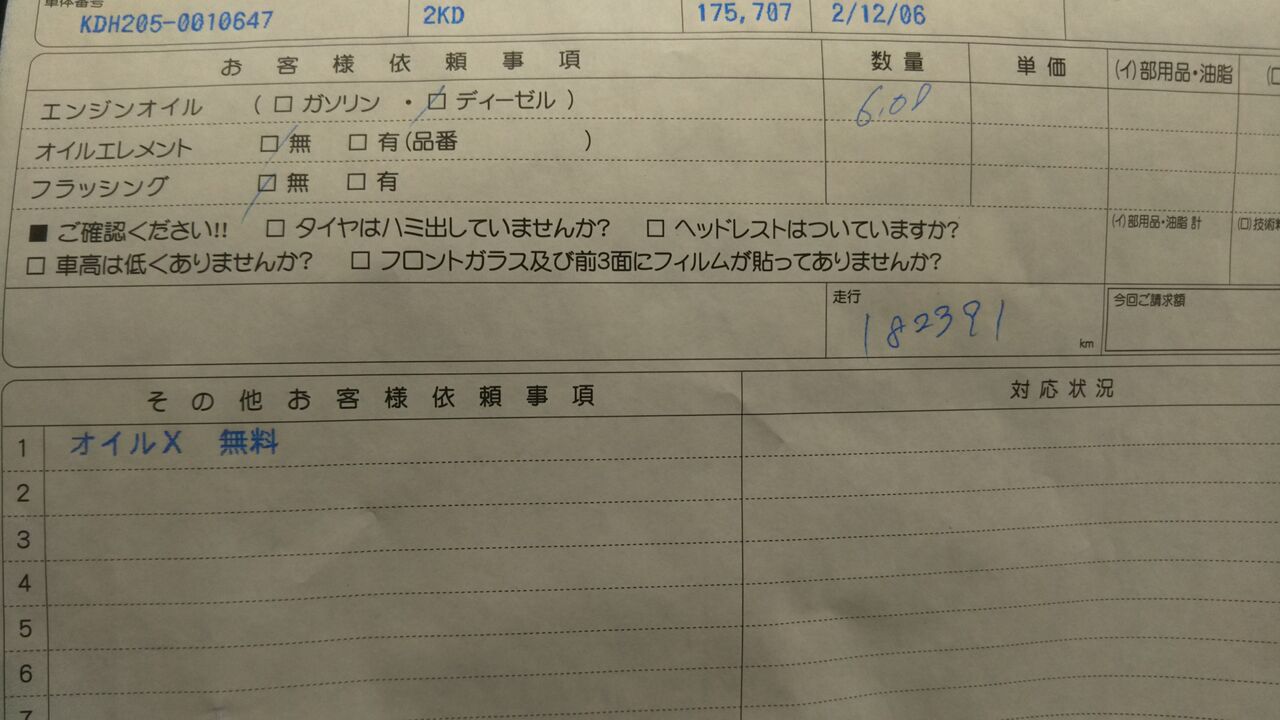 車体番号
KDH205-0010647 2KD 175,707 2/12/06
お客様依頼事項 数量 単価 (イ)部用品・油脂
エンジンオイル (□ ガソリン ・ □ ディーゼル) 6.0ℓ
オイルエレメント □ 無 □ 有(品番 )
フラッシング □ 無 □ 有
■ ご確認ください!! □ タイヤはハミ出していませんか? □ ヘッドレストはついていますか? (イ)部用品・油脂 計 (ロ)技術料
□ 車高は低くありませんか? □ フロントガラス及び前3面にフィルムが貼ってありませんか?
走行 182391 km 今回ご請求額
その他お客様依頼事項 対応状況
1 オイルX 無料
2
3
4
5
6
7